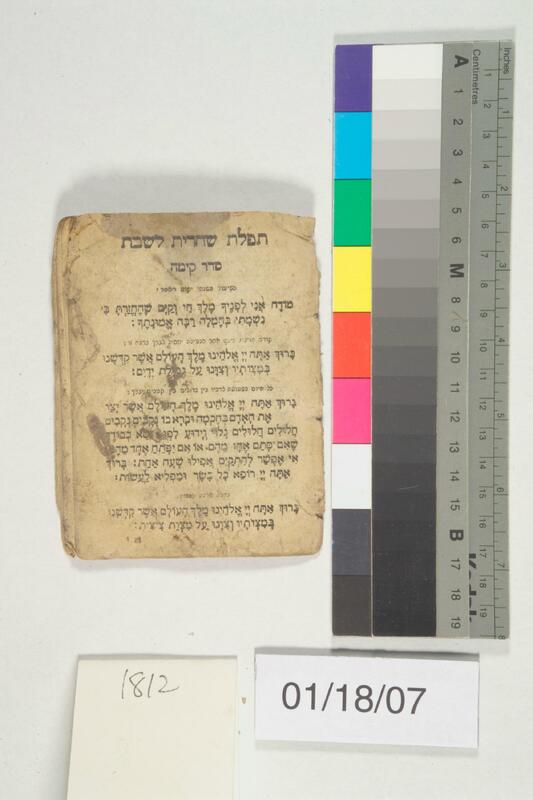 תפלת שחרית לשבת
סדר קימה
מוֹדֶה אֲנִי לְפָנֶיךָ מֶלֶךְ חַי וְקַיָּם שֶׁהֶחֱזַרְתָּ בִּי
נִשְׁמָתִי בְּחֶמְלָה רַבָּה אֱמוּנָתֶךָ׃
בָּרוּךְ אַתָּה יְיָ אֱלֹהֵינוּ מֶלֶךְ הָעוֹלָם אֲשֶׁר קִדְּשָׁנוּ
בְּמִצְוֹתָיו וְצִוָּנוּ עַל נְטִילַת יָדָיִם׃
בָּרוּךְ אַתָּה יְיָ אֱלֹהֵינוּ מֶלֶךְ הָעוֹלָם אֲשֶׁר יָצַר
אֶת הָאָדָם בְּחָכְמָה וּבָרָא בוֹ נְקָבִים נְקָבִים
חֲלוּלִים חֲלוּלִים גָּלוּי וְיָדוּעַ לִפְנֵי כִסֵּא כְבוֹדֶךָ
שֶׁאִם יִסָּתֵם אֶחָד מֵהֶם. אוֹ אִם יִפָּתֵחַ אֶחָד מֵהֶם
אִי אֶפְשַׁר לְהִתְקַיֵּם אֲפִילוּ שָׁעָה אֶחָת׃ בָּרוּךְ
אַתָּה יְיָ רוֹפֵא כָל בָּשָׂר וּמַפְלִיא לַעֲשׂוֹת׃
בָּרוּךְ אַתָּה יְיָ אֱלֹהֵינוּ מֶלֶךְ הָעוֹלָם אֲשֶׁר קִדְּשָׁנוּ
בְּמִצְוֹתָיו וְצִוָּנוּ עַל מִצְוַת צִיצִית׃
A 1 2 3 4 5 6 M 8 9 10 11 12 13 14 15 B 17 18 19
Centimetres 1 2 3 4 5 6 7 8 9 10 11 12 13 14 15 16 17 18 19
Inches 1 2 3 4 5 6 7 8
1812
01/18/07